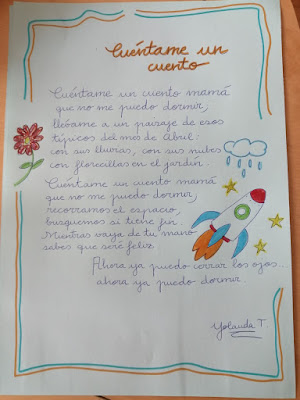 Cuéntame un
cuento
Cuéntame un cuento mamá
que no me puedo dormir,
llévame a un paisaje de esos
típicos del mes de Abril:
con sus lluvias, con sus nubes
con florecillas en el jardín.
Cuéntame un cuento mamá
que no me puedo dormir,
recorramos el espacio,
busquemos si tiene fin.
Mientras vaya de tu mano
sabes que seré feliz.
Ahora ya puedo cerrar los ojos...
ahora ya puedo dormir...
Yolanda T.